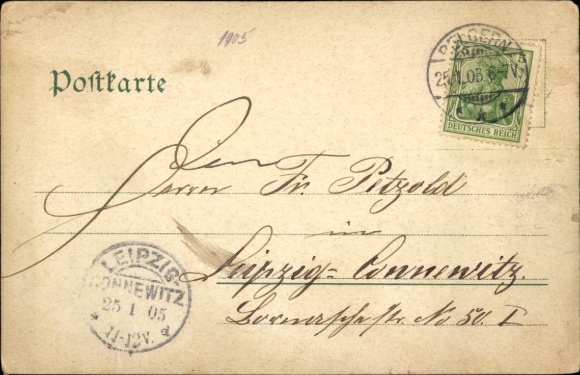 1905
BELGERN
25.1.05.6-7V.
DEUTSCHES REICH
Postkarte
Den
Herrn Fr. Petzold
in
Leipzig-Connewitz.
Bornaschestr. No 50. I
LEIPZIG-
CONNEWITZ
25 1 05
11-12V.
d